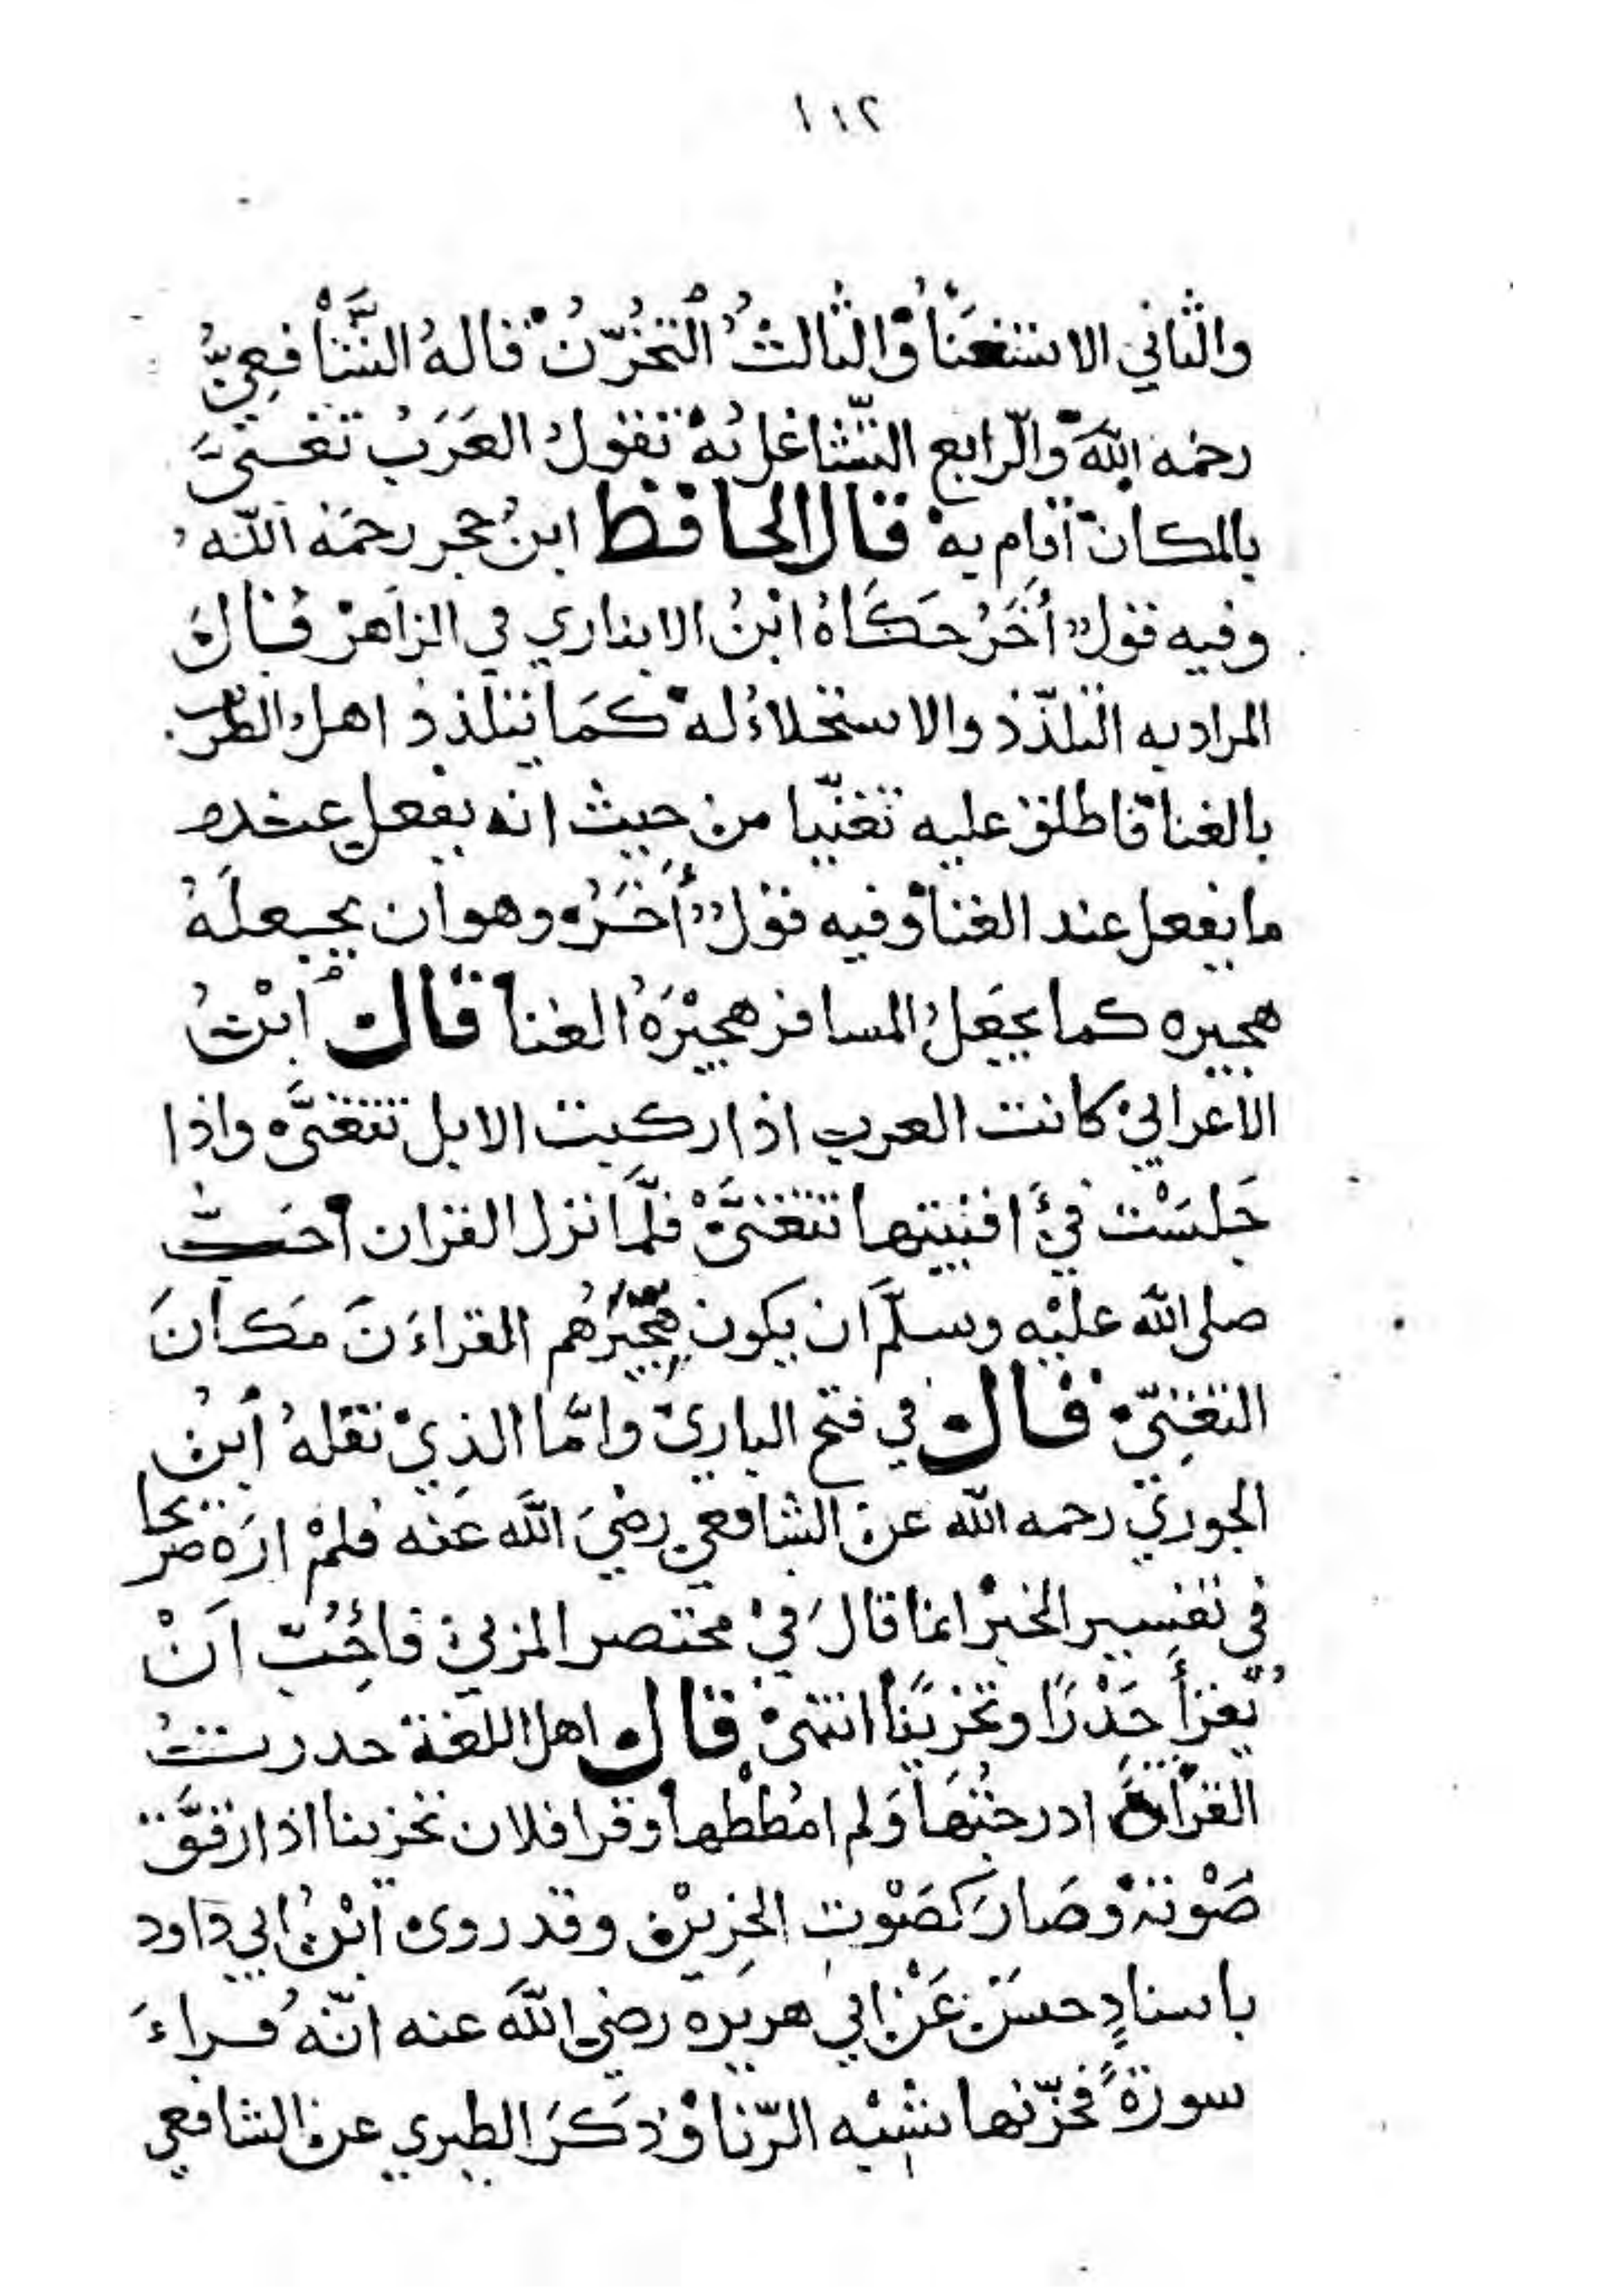 ١١٢
والثاني الاستغنا والثالثُ التحزّن قاله الشّافعيُّ
رحمه الله والرابع التّشاغل به تقول العَرَبُ تغنىَّ
بالمكان أقام به قال الحافظ ابن حجر رحمه الله
وفيه قول أخَرُ حَكَاهُ ابْنُ الانباري في الزاهر قال
المراد به التلذّذ والاستحلاءُ له كمَا يتلذذ اهل الطرب
بالغنا فاطلق عليه تَغنّيا من حيث انه يفعل عنده
ما يفعل عند الغنا وفيه قول أخَرُ وهو ان يجعلَهُ
هجيره كما يجعَلُ المسافر هجيْرَهُ الغنا قال ابنُ
الاعرابي كانت العرب اذا ركبت الابل تتغنىَّ واذا
جَلسَتْ في افنيتها تتغنىَّ فلمَّا نزل القران احَبّ
صلى الله عليْه وسلّمَ ان يكون هجّيرُهُم القراءَنَ مَكانَ
التغنّي قال في فتح الباري وامَّا الذي نقلهُ ابنُ
الجوزي رحمه الله عن الشافعي رضيَ اللهَ عَنه فلمْ ارَهُ صريحا
في تفسير الخبر انما قالَ فيْ مختصر المزني فاحُبّ اَنْ
يقرأَ حَدْرًا وتحزِيَنًا انتهى قال اهل اللغة حدرتُ
القراة ادرجْتُهَا وَلم امُططْها وقرا فلان تحزينا اذا رقَّق
صَوْتهُ وصَارَ كصَوْتِ الحزِيْن وقد روى ابْنُ ابي داود
باسنادٍ حسَن عَنْ ابي هريره رضي اللهَ عنه انّهُ قراءَ
سورةً فحزّنها شبْه الرّثا وَذكَرَ الطبري عن الشافعي